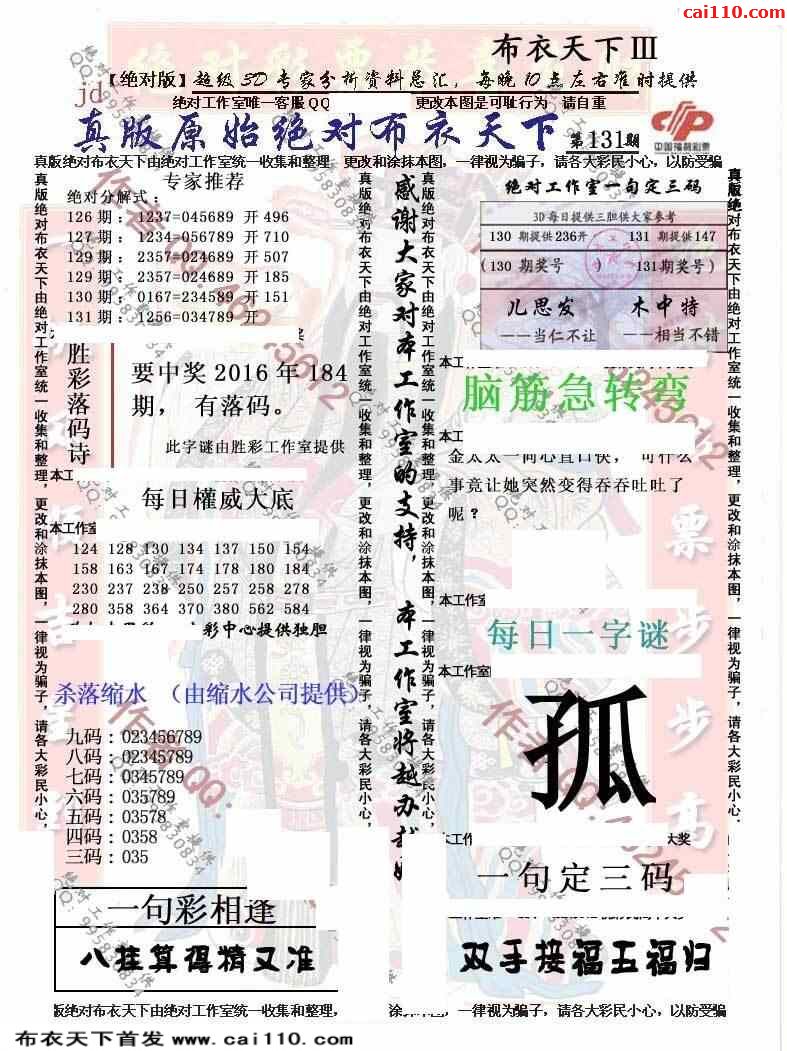 cai110.com
布衣天下Ⅲ
【绝对版】超级3D专家分析资料总汇，每晚10点左右准时提供
jd
绝对工作室唯一客服QQ 更改本图是可耻行为 请自重
真版原始绝对布衣天下 第131期
中国福利彩票
真版绝对布衣天下由绝对工作室统一收集和整理 更改和涂抹本图，一律视为骗子，请各大彩民小心，以防受骗
真版绝对布衣天下由绝对工作室统一收集和整理，更改和涂抹本图，一律视为骗子，请各大彩民小心，
专家推荐
绝对分解式：
126期：1237=045689 开496
127期：1234=056789 开710
129期：2357=024689 开507
129期：2357=024689 开185
130期：0167=234589 开151
131期：1256=034789 开
胜彩落码诗
要中奖2016年184
期，有落码。
此字谜由胜彩工作室提供
本工
每日權威大底
本工作室
124 128 130 134 137 150 154
158 163 167 174 178 180 184
230 237 238 250 257 258 278
280 358 364 370 380 562 584
彩中心提供独胆
杀落缩水 （由缩水公司提供）
九码：023456789
八码：02345789
七码：0345789
六码：035789
五码：03578
四码：0358
三码：035
一句彩相逢
八挂算得精又准
真版绝对布衣天下由绝对工作室统一收集和整理，更改和涂抹本图，一律视为骗子，请各大彩民小心，
感谢大家对本工作室的支持，本工作室将越办越
真版绝对布衣天下由绝对工作室统一收集和整理，更改和涂抹本图，一律视为骗子，请各大彩民小心，
绝对工作室一句定三码
3D每日提供三胆供大家参考
130 期提供236开 131 期提供147
(130 期奖号 ) 131期奖号)
儿思发 木中特
——当仁不让 ——相当不错
本工
脑筋急转弯
本工
金太太一向心直口快，可什么
事竟让她突然变得吞吞吐吐了
呢？
本工作室
每日一字谜
本工作室
孤
本工作 大奖
一句定三码
双手接福五福归
真版绝对布衣天下由绝对工作室统一收集和整理，更改和涂抹本图，一律视为骗子，请各大彩民小心，
票步步高
版绝对布衣天下由绝对工作室统一收集和整理， 涂抹本图，一律视为骗子，请各大彩民小心，以防受骗
布衣天下首发 www.cai110.com